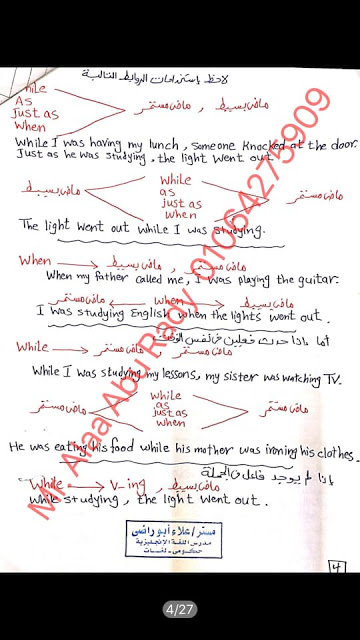 لاحظ استخدامات الروابط التالية
while
As
Just as
when
ماضى مستمر , ماضى بسيط
While I was having my lunch, someone knocked at the door.
Just as he was studying, the light went out
ماضى بسيط
while
as
just as
when
ماضى مستمر
The light went out while I was studying.
When → ماضى بسيط , ماضى مستمر
When my father called me, I was playing the guitar.
ماضى مستمر ← when → ماضى بسيط
I was studying English when the lights went out.
أما إذا حدث فعلين فى نفس الوقت
While → ماضى مستمر , ماضى مستمر
While I was studying my lessons, my sister was watching TV.
ماضى مستمر
while
as
just as
when
ماضى مستمر
He was eating his food while his mother was ironing his clothes.
إذا لم يوجد فاعل فى الجملة
While → V-ing , ماضى بسيط
While studying, the light went out.
Mr Alaa Abu Rady 01064275909
مستر / علاء أبو راضى
مدرس اللغة الإنجليزية
4
4/27